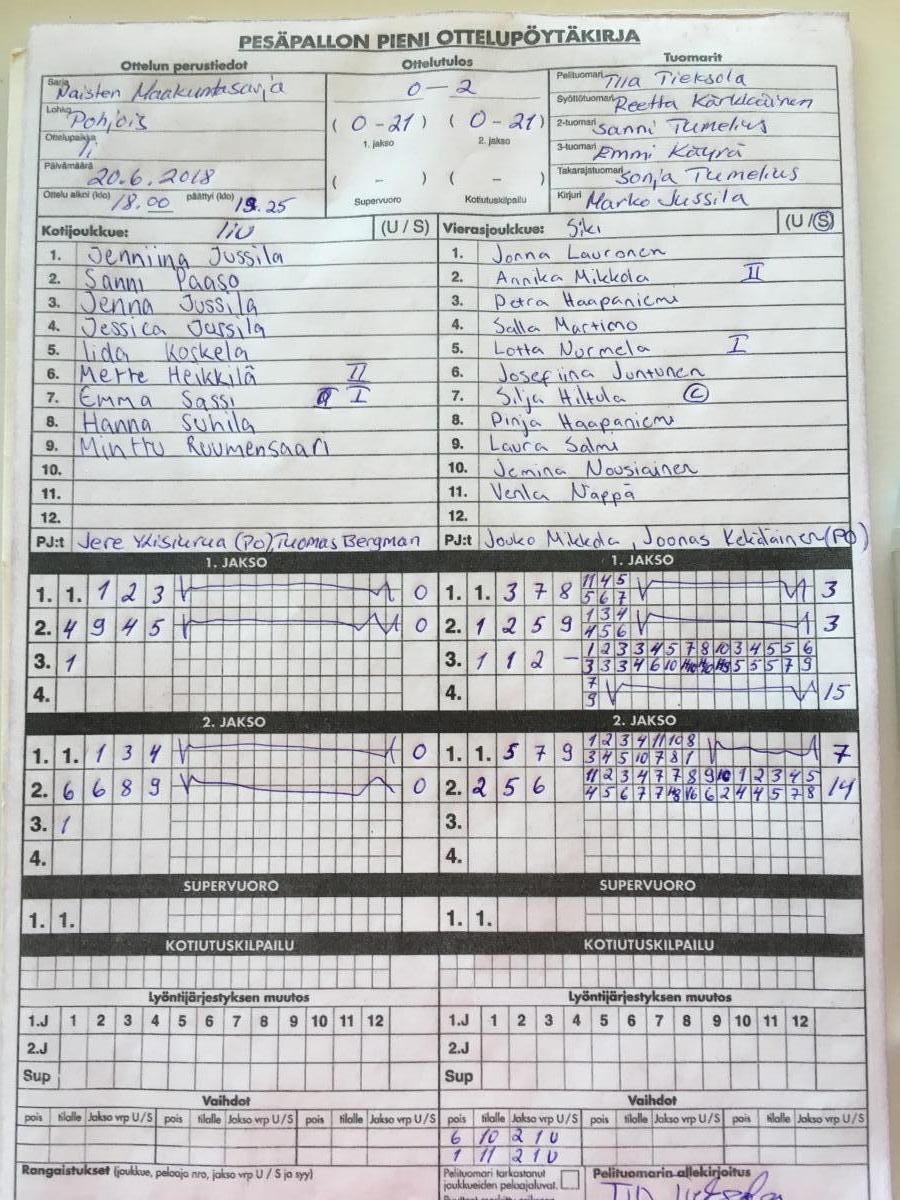 PESÄPALLON PIENI OTTELUPÖYTÄKIRJA
Ottelun perustiedot Ottelutulos Tuomarit
Sarja Naisten Maakuntasarja
Lohko Pohjois
Ottelupaikka Ii
Päivämäärä 20.6.2018
Ottelu alkoi (klo) 18.00 päättyi (klo) 19.25
0 - 2
( 0 - 21 ) ( 0 - 21 )
1. jakso 2. jakso
( - ) ( - )
Supervuoro Kotiutuskilpailu
Pelituomari Tiia Tieksola
Syöttötuomari Reetta Kärkkäinen
2-tuomari Sanni Tumelius
3-tuomari Emmi Käyrä
Takarajatuomari Sonja Tumelius
Kirjuri Marko Jussila
Kotijoukkue: IiU (U / S)
1. Jenniina Jussila
2. Sanni Paaso
3. Jenna Jussila
4. Jessica Jussila
5. Iida Koskela
6. Merte Heikkilä II
7. Emma Sassi I
8. Hanna Suhila
9. Minttu Ruumensaari
10.
11.
12.
PJ:t Jere (PO), Tuomas Bergman
Vierasjoukkue: SiKi (U / S)
1. Jonna Lauronen
2. Annika Mikkola II
3. Petra Haapaniemi
4. Salla Martimo
5. Lotta Nurmela I
6. Josefiina Juntunen
7. Silja Hiltula C
8. Pinja Haapaniemi
9. Laura Salmi
10. Jemina Nousiainen
11. Venla Näppä
12.
PJ:t Jouko Mikkola, Joonas (PO)
1. JAKSO
1. 1. 1 2 3 0
2. 4 9 4 5 0
3. 1
4.
1. JAKSO
1. 1. 3 7 8 11 4 5 3
5 6 7
2. 1 2 5 9 1 3 4 3
4 5 6
3. 1 1 2 - 1 2 3 3 4 5 7 8 10 3 4 5 5 6
3 3 3 4 6 10 5 5 5 7 9
4. 7 15
9
2. JAKSO
1. 1. 1 3 4 0
2. 6 6 8 9 0
3. 1
4.
2. JAKSO
1. 1. 5 7 9 1 2 3 4 11 10 8 7
3 4 5 10 7 8 1
2. 2 5 6 11 2 3 4 7 7 8 9 10 1 2 3 4 5 14
4 5 6 7 7 6 2 4 4 5 7 8
3.
4.
SUPERVUORO SUPERVUORO
1. 1. 1. 1.
KOTIUTUSKILPAILU KOTIUTUSKILPAILU
Lyöntijärjestyksen muutos Lyöntijärjestyksen muutos
1.J 1 2 3 4 5 6 7 8 9 10 11 12 1.J 1 2 3 4 5 6 7 8 9 10 11 12
2.J 2.J
Sup Sup
Vaihdot Vaihdot
pois tilalle Jakso vrp U/S pois tilalle Jakso vrp U/S pois tilalle Jakso vrp U/S pois tilalle Jakso vrp U/S pois tilalle Jakso vrp U/S pois tilalle Jakso vrp U/S
6 10 2 1 U
1 11 2 1 U
Rangaistukset (joukkue, pelaaja nro, jakso vrp U / S ja syy)
Pelituomari tarkastanut
joukkueiden pelaajaluvat.
Pelituomarin allekirjoitus